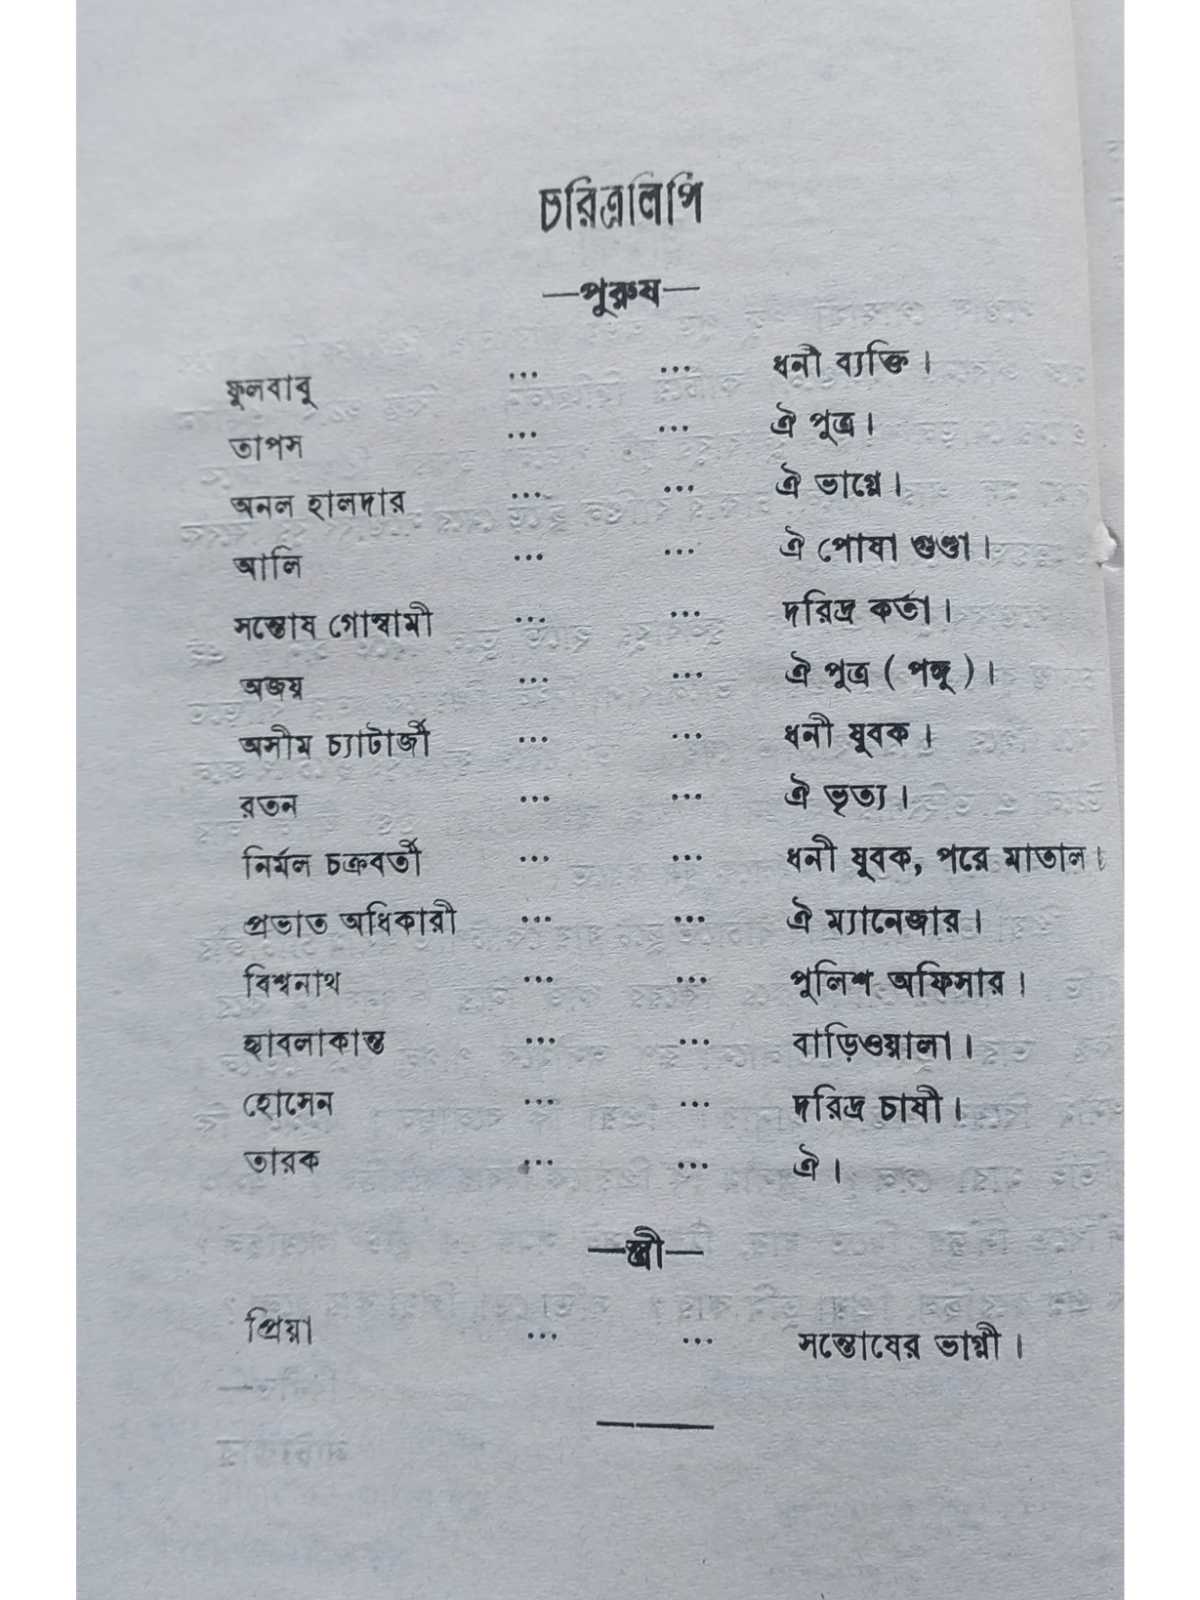 চরিত্রলিপি
—পুরুষ—
ফুলবাবু ... ... ধনী ব্যক্তি।
তাপস ... ... ঐ পুত্র।
অনল হালদার ... ... ঐ ভাগ্নে।
আলি ... ... ঐ পোষা গুণ্ডা।
সন্তোষ গোস্বামী ... ... দরিদ্র কর্তা।
অজয় ... ... ঐ পুত্র ( পঙ্গু )।
অসীম চ্যাটার্জী ... ... ধনী যুবক।
রতন ... ... ঐ ভৃত্য।
নির্মল চক্রবর্তী ... ... ধনী যুবক, পরে মাতাল।
প্রভাত অধিকারী ... ... ঐ ম্যানেজার।
বিশ্বনাথ ... ... পুলিশ অফিসার।
হাবলাকান্ত ... ... বাড়িওয়ালা।
হোসেন ... ... দরিদ্র চাষী।
তারক ... ... ঐ।
—স্ত্রী—
প্রিয়া ... ... সন্তোষের ভাগ্নী।